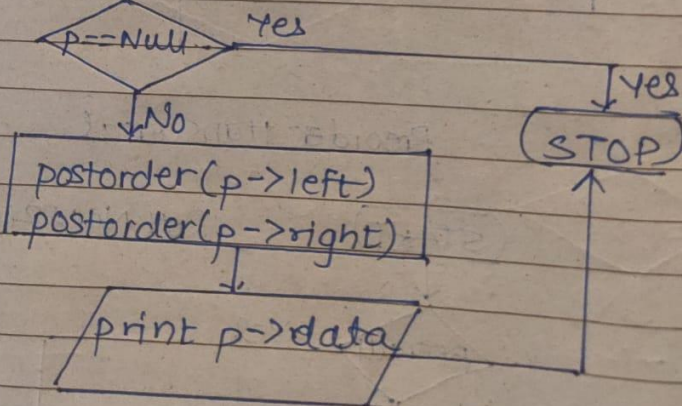 Yes
p==Null
Yes
No
STOP
postorder(p->left)
postorder(p->right)
print p->data